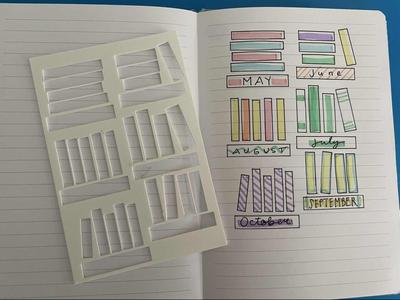 MAY
June
AUGUST
July
October
SEPTEMBER